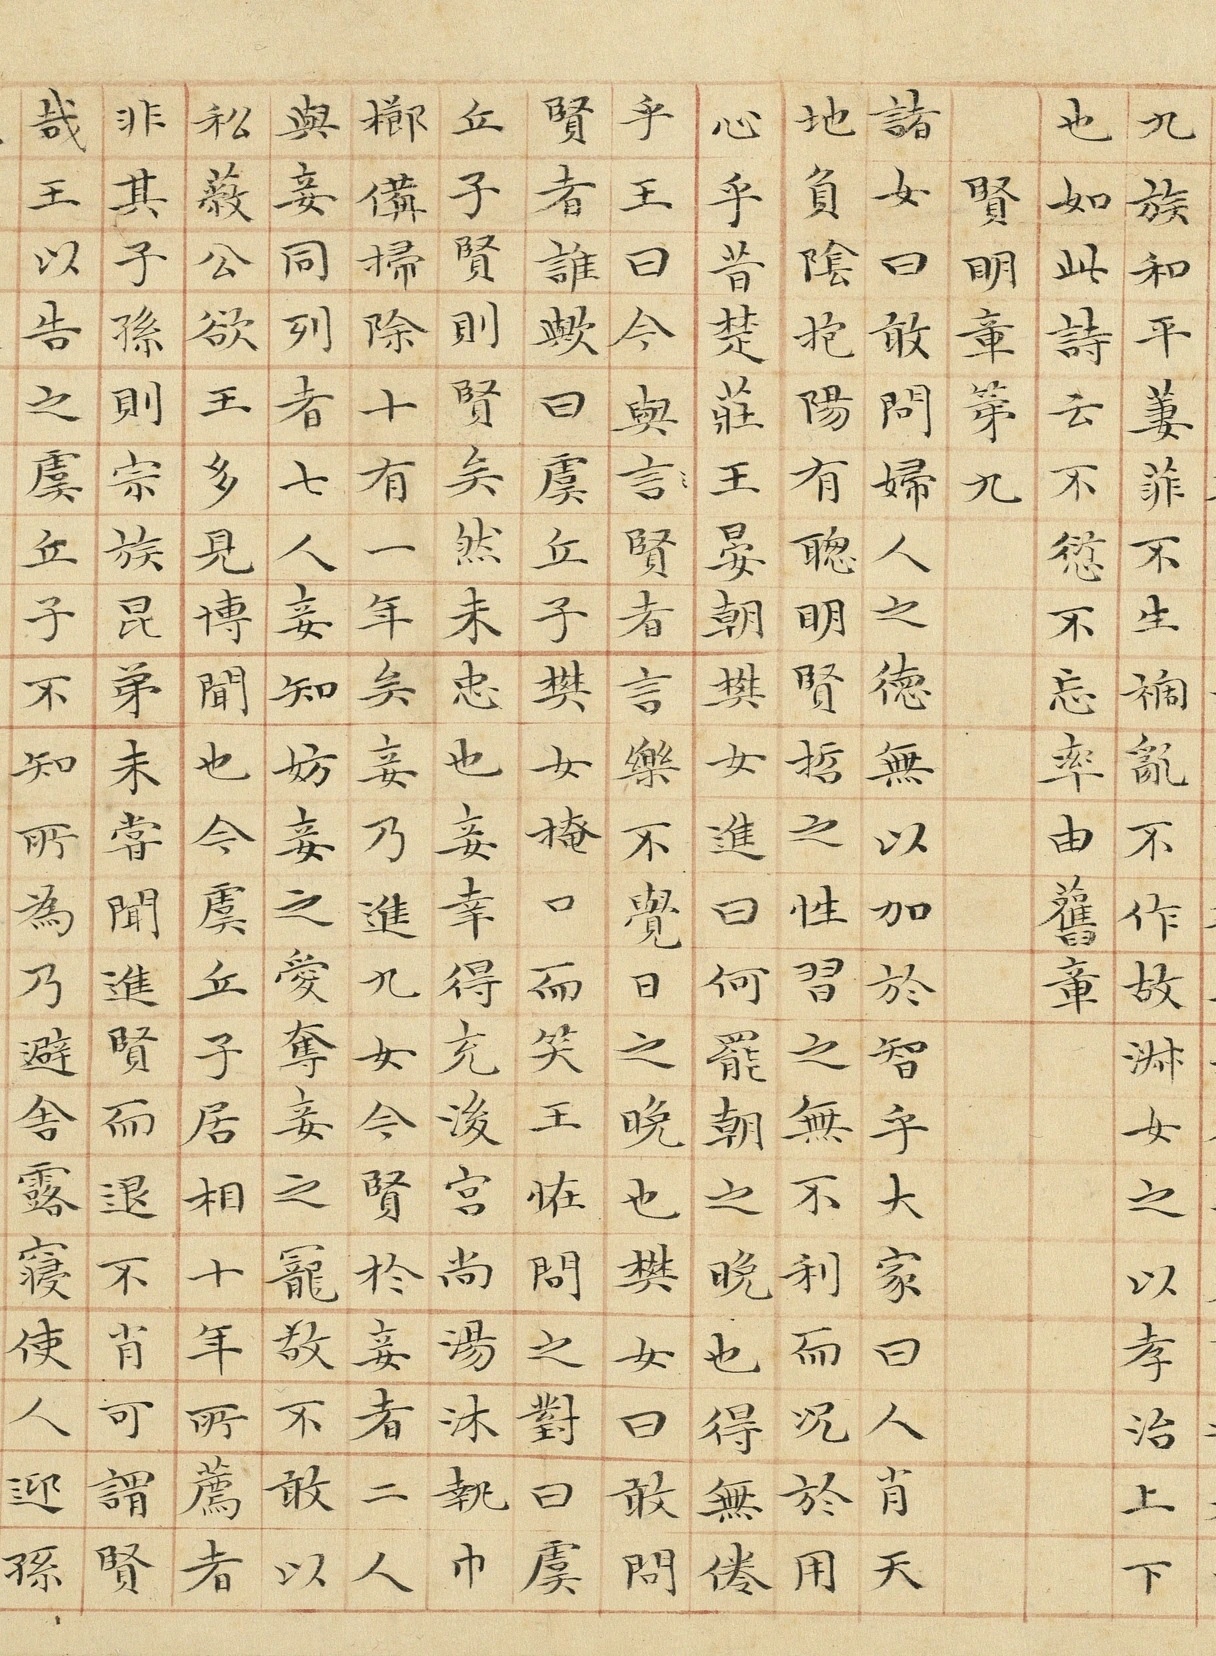 九族和平萋菲不生禍亂不作故淋女之以孝治上下
也如此詩云不愆不忘率由舊章
賢明章第九
諸女曰敢問婦人之德無以加於智乎大家曰人肖天
地負陰抱陽有聰明賢哲之性習之無不利而況於用
心乎昔楚莊王晏朝樊女進曰何罷朝之晚也得無倦
乎王曰今與言〻賢者言樂不覺日之晚也樊女曰敢問
賢者誰歟曰虞丘子樊女掩口而笑王怪問之對曰虞
丘子賢則賢矣然未忠也妾幸得充後宮尚湯沐執巾
櫛備掃除十有一年矣妾乃進九女今賢於妾者二人
與妾同列者七人妾知妨妾之愛奪妾之寵敢不敢以
私蔽公欲王多見博聞也今虞丘子居相十年所薦者
非其子孫則宗族昆弟未嘗聞進賢而退不肖可謂賢
哉王以告之虞丘子不知所為乃避舍露寢使人迎孫